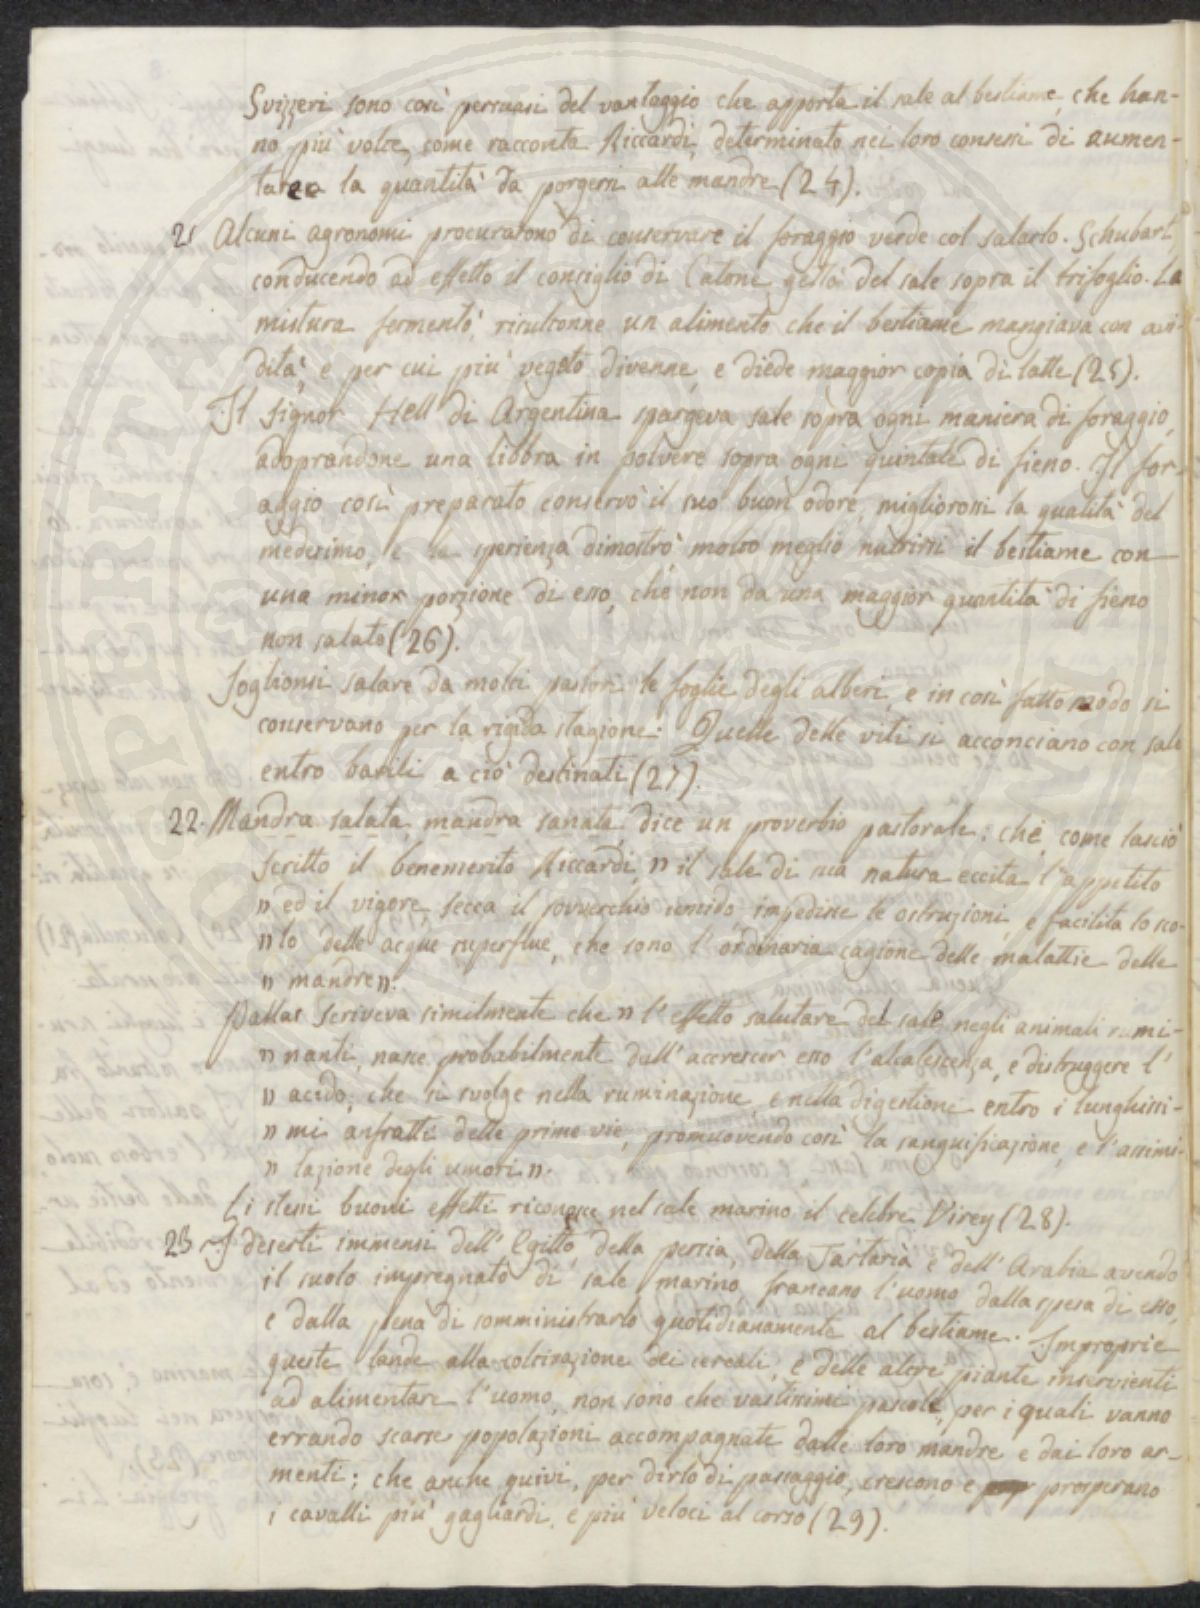 Svizzeri sono così persuasi del vantaggio che apporta il sale al bestiame, che han-
no più volte, come racconta Riccardi, determinato nei loro consessi di aumen-
tare la quantità da porgersi alle mandre (24).
21 Alcuni agronomi procurarono di conservare il foraggio verde col salarlo. Schubart
conducendo ad effetto il consiglio di Catone, gettò del sale sopra il trifoglio. La
mistura fermentò, risultonne un alimento che il bestiame mangiava con avi-
dità, e per cui più vegeto divenne, e diede maggior copia di latte (25).
Il Signor Hell di Argentina spargeva sale sopra ogni maniera di foraggio,
adoprandone una libbra in polvere sopra ogni quintale di fieno. Il for-
aggio così preparato conservò il suo buon odore, migliorossi la qualità del
medesimo, e la sperienza dimostrò molto meglio nutrirsi il bestiame con
una minor porzione di esso, che non da una maggior quantità di fieno
non salato (26).
Soglionsi salare da molti pastori le foglie degli alberi, e in così fatto modo si
conservano per la rigida stagione: Quelle delle viti si acconciano con sale
entro barili a ciò destinati (27).
22. Mandra salata, mandra sanata, dice un proverbio pastorale: chè, come lasciò
scritto il benemerito Riccardi, " il sale di sua natura eccita l'appetito
" ed il vigore, secca il sovverchio umido, impedisce le ostruzioni, e facilita lo sco-
" lo delle acque superflue, che sono l'ordinaria cagione delle malattie delle
" mandre ".
Pallas scriveva similmente che " l'effetto salutare del sale negli animali rumi-
" nanti, nasce probabilmente dall'accrescer esso l'alcalescenza, e distruggere l'
" acido, che si svolge nella ruminazione, e nella digestione entro i lunghissi-
" mi anfratti delle prime vie, promuovendo così la sanguificazione, e l'assimi-
" lazione degli umori ".
Li stessi buoni effetti riconosce nel sale marino il celebre Virey (28).
23 I deserti immensi dell'Egitto, della persia, della Tartaria e dell'Arabia avendo
il suolo impregnato di sale marino, francano l'uomo dalla spesa di esso,
e dalla pena di somministrarlo quotidianamente al bestiame. Improprie
queste lande alla coltivazione dei cereali, e delle altre piante inservienti
ad alimentare l'uomo, non sono che vastissimi pascoli, per i quali vanno
errando scarse popolazioni accompagnate dalle loro mandre e dai loro ar-
menti; che anche quivi, per dirlo di passaggio, crescono e prosperano
i cavalli più gagliardi, e più veloci al corso (29).